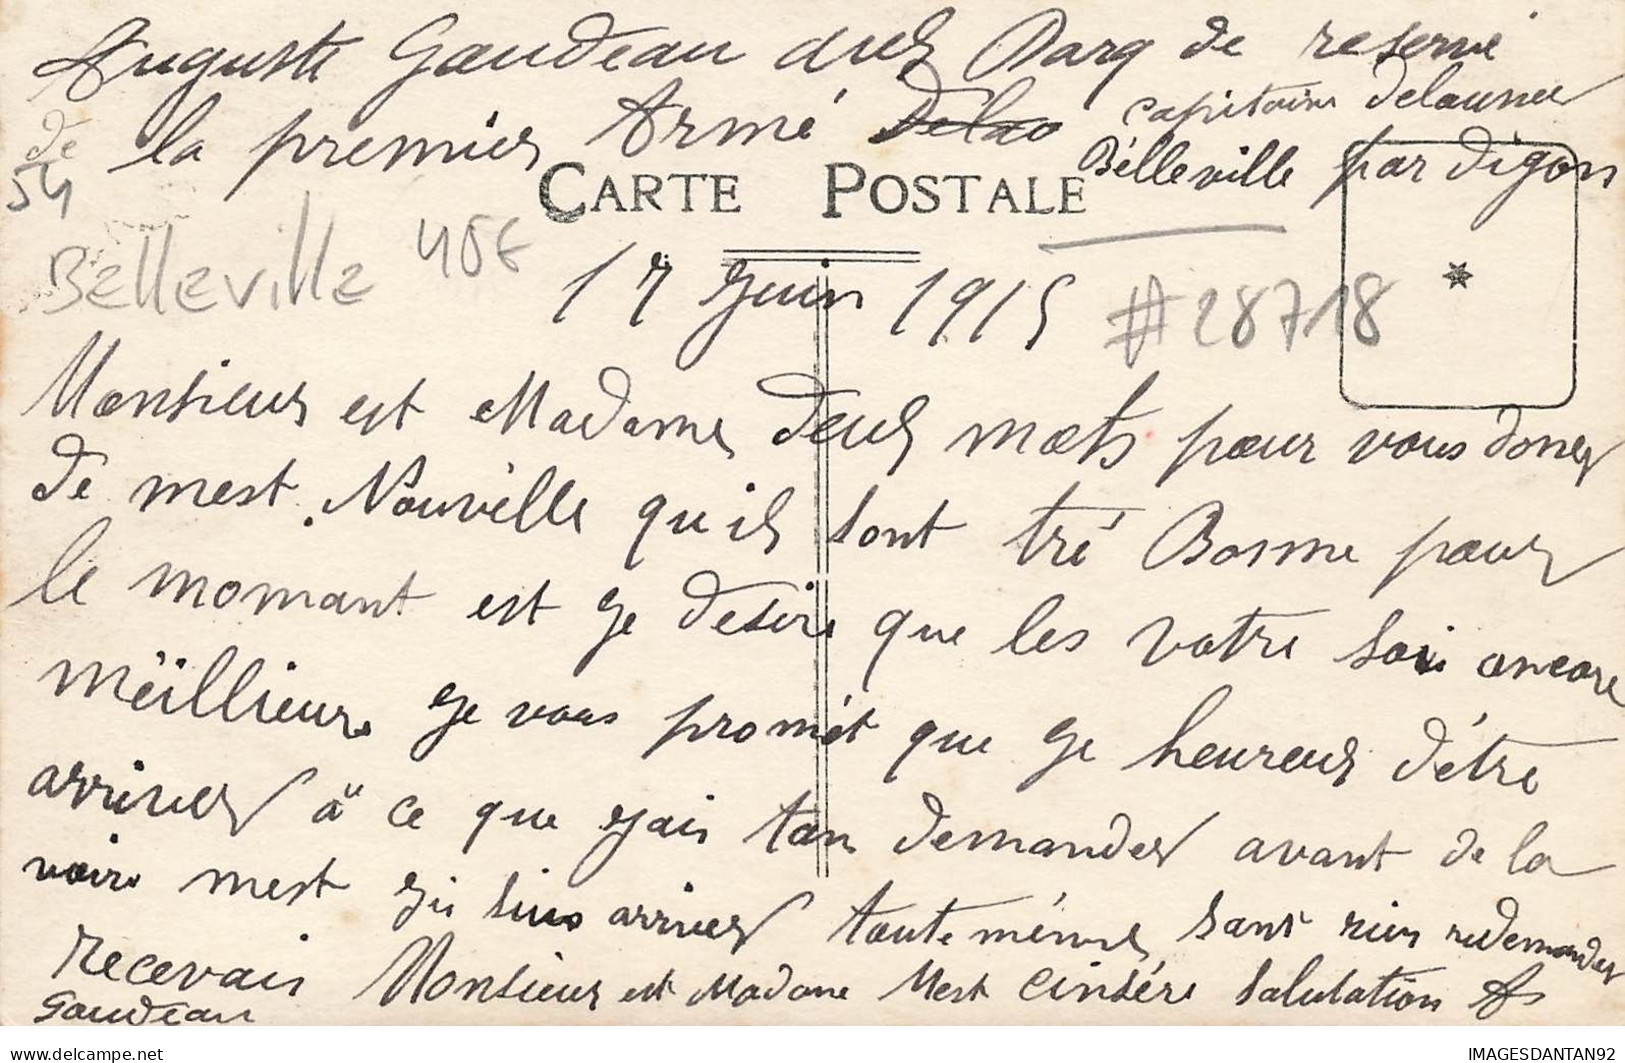 Auguste Gaudeau aux Parq de reserve
de la premier Armé Delao capitaine delaunee
54 Bélleville par digon
CARTE POSTALE
Belleville 40€
17 Juin 1915 #28718
Monsieur est Madame deux mots pour vous doner
de mest. Nouvelle qu'ils sont tré Bonne pour
le momant est Je desire que les votre soie ancore
méïllieure Je vous promét que Je heureux d'étre
arriver à ce que Jais tan demander avant de la
voire mest Ji suis arriver toute méme sans rien redemander
recevais Monsieur est Madame Mest cinsére salutation A
Gaudeau
delcampe.net
IMAGESDANTAN92